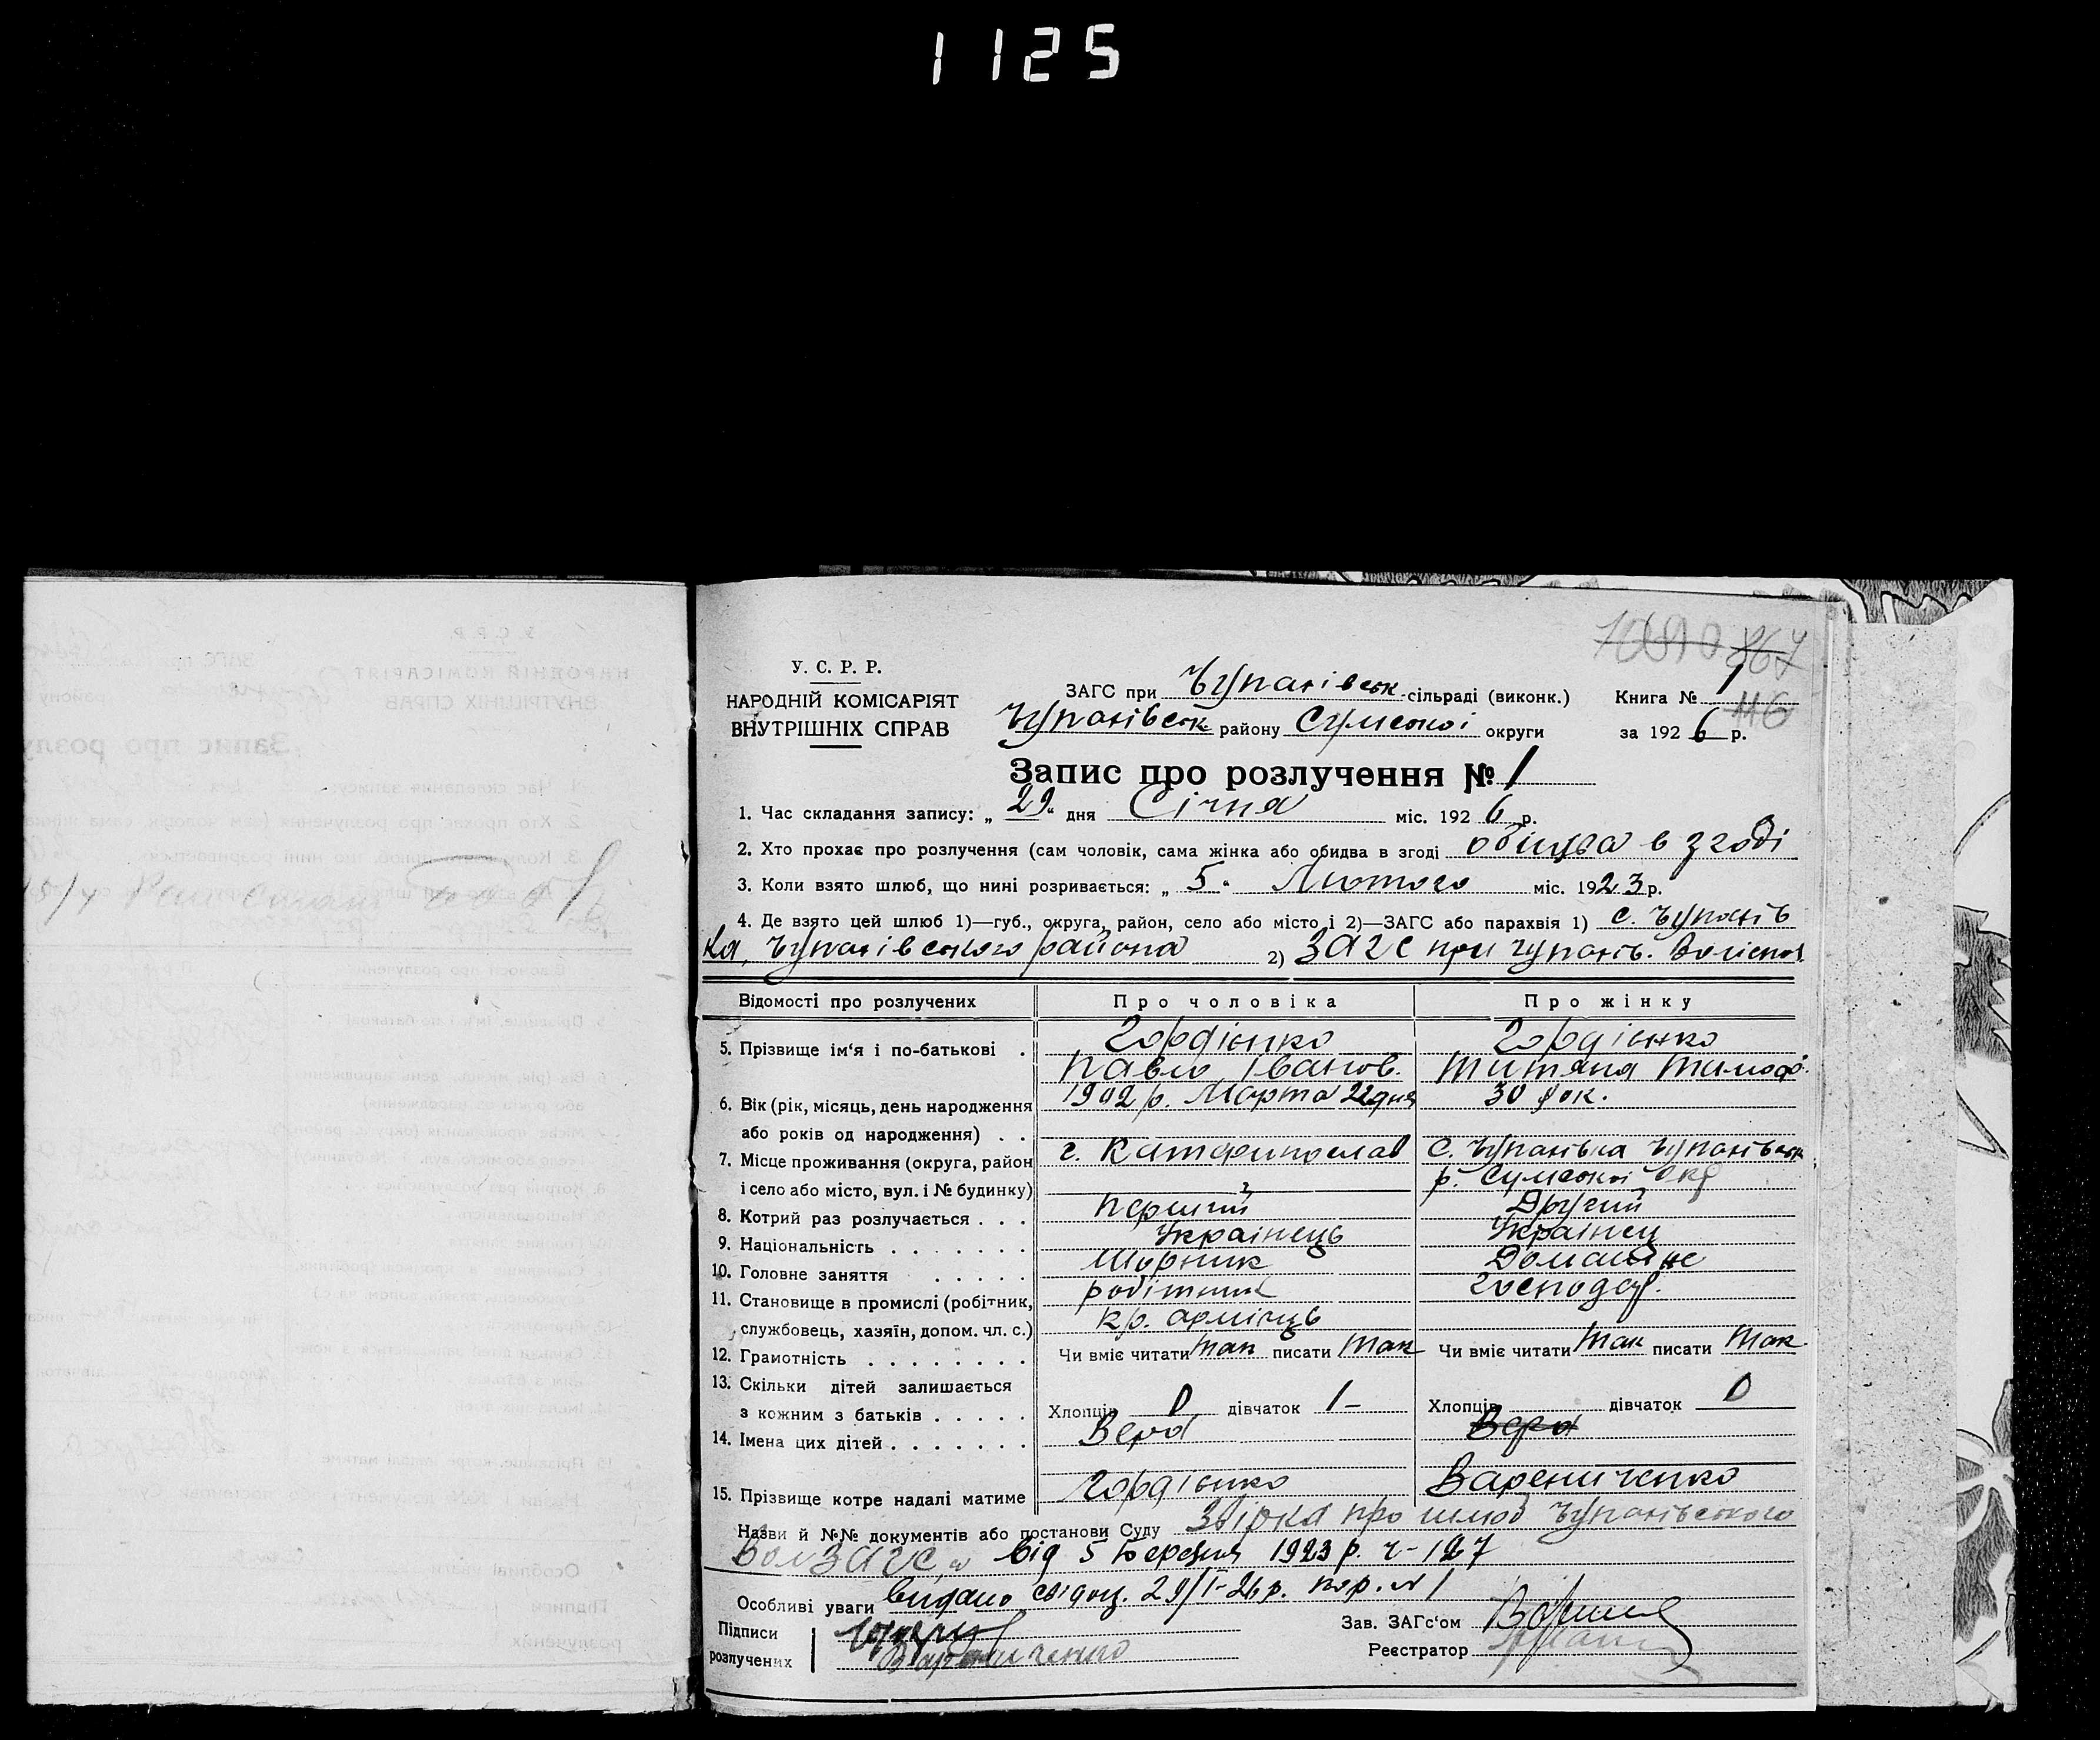 1125
867
116
У. С. Р. Р.
НАРОДНІЙ КОМІСАРІЯТ
ВНУТРІШНІХ СПРАВ
ЗАГС при Чупахівськ. сільраді (виконк.)
Книга № 1
Чупахівськ району Сумської округи
за 1926 р.
Запис про розлучення № 1
1. Час складання запису: „29“ дня Січня міс. 1926 р.
2. Хто прохає про розлучення (сам чоловік, сама жінка або обидва в згоді обидва в згоді
3. Коли взято шлюб, що нині розривається: „5“ Лютого міс. 1923 р.
4. Де взято цей шлюб 1)—губ., округа, район, село або місто і 2)—ЗАГС або парахвія 1) с. Чупахів
ка, Чупахівського района 2) ЗАГС при Чупахів.
Відомості про розлучених Про чоловіка Про жінку
5. Прізвище ім‘я і по-батькові . Гордієнко Гордієнко
Павло Іванов. Титяна Тимоф.
6. Вік (рік, місяць, день народження 1902 р. Марта 22 дня 30 рок.
або років од народження) . .
7. Місце проживання (округа, район г. Катеринослав С. Чупахівка Чупахівськ
і село або місто, вул. і № будинку) р. Сумської Окр
8. Котрий раз розлучається . . . Перший Другий
9. Національність . . . . . . . Українець Українец
10. Головне заняття . . . . . Шорник Домашнє
11. Становище в промислі (робітник, робітник господар.
службовець, хазяїн, допом. чл. с.) кр. армієць
12. Грамотність . . . . . . . . Чи вміє читати так писати так Чи вміє читати так писати так
13. Скільки дітей залишається
з кожним з батьків . . . . . Хлопців 0 дівчаток 1- Хлопців дівчаток 0
14. Імена цих дітей . . . . . . . Вера Вера
15. Прізвище котре надалі матиме Гордієнко Варениченко
Назви й №№ документів або постанови Суду про шлюб Чупахівського
Волзагс,а від 5 березня 1923 р. ч-127
Особливі уваги видано свідоц. 29/I-26 р. пор. № 1
Підписи
розлучених Варениченко
Зав. ЗАГс‘ом
Реєстратор